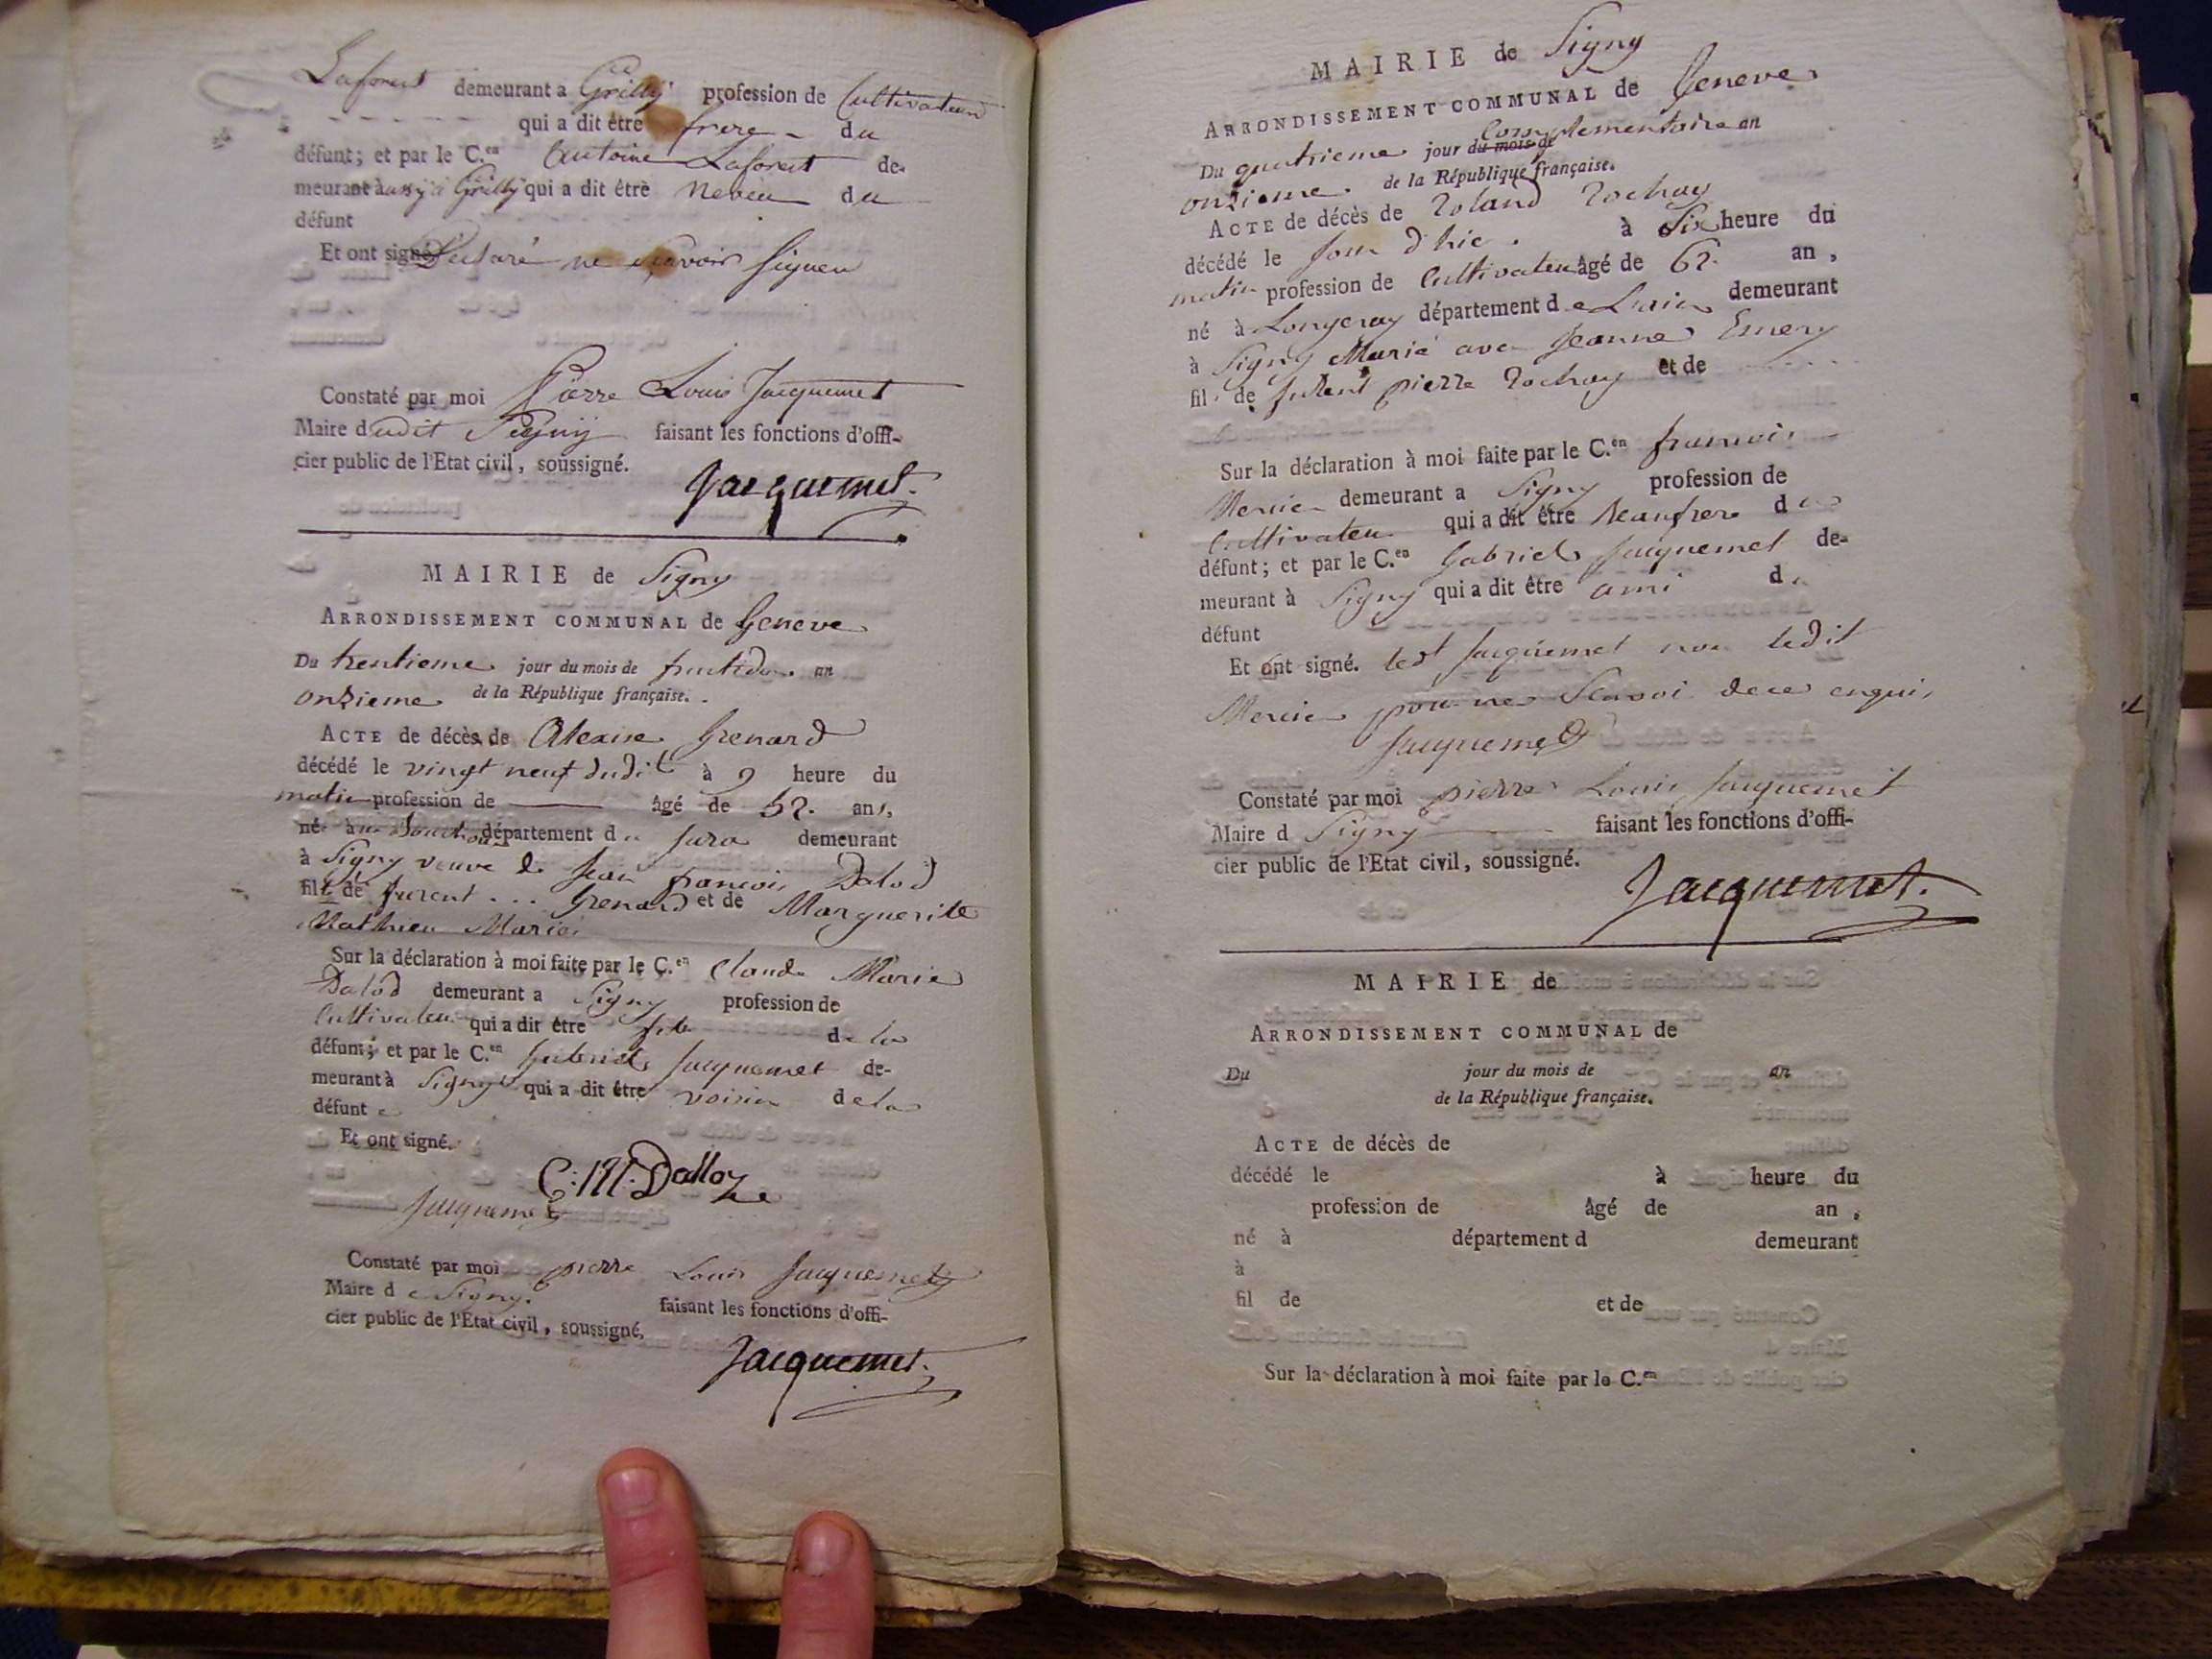 Laforest demeurant a Grilly profession de Cultivateur
- - - - - - qui a dit être frere du
défunt; et par le C.en Antoine Laforest de-
meurant à aussy a Grilly qui a dit être Neveu du
défunt
Et ont signé Declaré ne Scavoir signer
Constaté par moi Pierre Louis Jacquemet
Maire dudit Segny faisant les fonctions d'offi-
cier public de l'Etat civil, soussigné.
Jacquemet.
MAIRIE de Signy
ARRONDISSEMENT COMMUNAL de Geneve
Du trentieme jour du mois de fructidor an
onzieme de la République française.
ACTE de décès de Alexise Grenard
décédé le vingt neuf dudit à 9 heure du
matin profession de âgé de 52. ans,
né département du Jura demeurant
à Signy veuve de Jean francois Dalod
fille de furent . . . Grenard et de Marguerite
Mathieu Mariés
Sur la déclaration à moi faite par le C.en Claude Marie
Dalod demeurant a Signy profession de
Cultivateur qui a dit être fils de la
défunt; et par le C.en Gabriel Jacquemet de-
meurant à Signy qui a dit être voisin de la
défunte
Et ont signé.
C: M. Dalloz
Jacquemet
Constaté par moi pierre Louis Jacquemet
Maire de Signy. faisant les fonctions d'offi-
cier public de l'Etat civil, soussigné,
Jacquemet.
MAIRIE de Signy
ARRONDISSEMENT COMMUNAL de Geneve
Complementaire an
Du quatrieme jour du mois de
onzieme. de la République française.
ACTE de décès de Roland Rochay
décédé le Jour d'hie. à Six heure du
matin profession de Cultivateu âgé de 62. an,
né à Longeray département de Lain demeurant
à Signy Marié avec Jeanne Emery
fil de furent pierre Rochay et de . . . .
Sur la déclaration à moi faite par le C.en francois
Mercier demeurant a Signy profession de
Cultivateu qui a dit être beaufrere du
défunt; et par le C.en Gabriel Jacquemet de-
meurant à Signy qui a dit être ami du
défunt
Et ont signé. ledt Jacquemet non ledit
Mercier pour ne Scavoi dece enquis
Jacquemet
Constaté par moi pierre Louis Jacquemet
Maire d Signy faisant les fonctions d'offi-
cier public de l'Etat civil, soussigné.
Jacquemet.
MAIRIE de
ARRONDISSEMENT COMMUNAL de
Du jour du mois de an
de la République française.
ACTE de décès de
décédé le à heure du
profession de âgé de an,
né à département d demeurant
à
fil de et de
Sur la déclaration à moi faite par le C.en